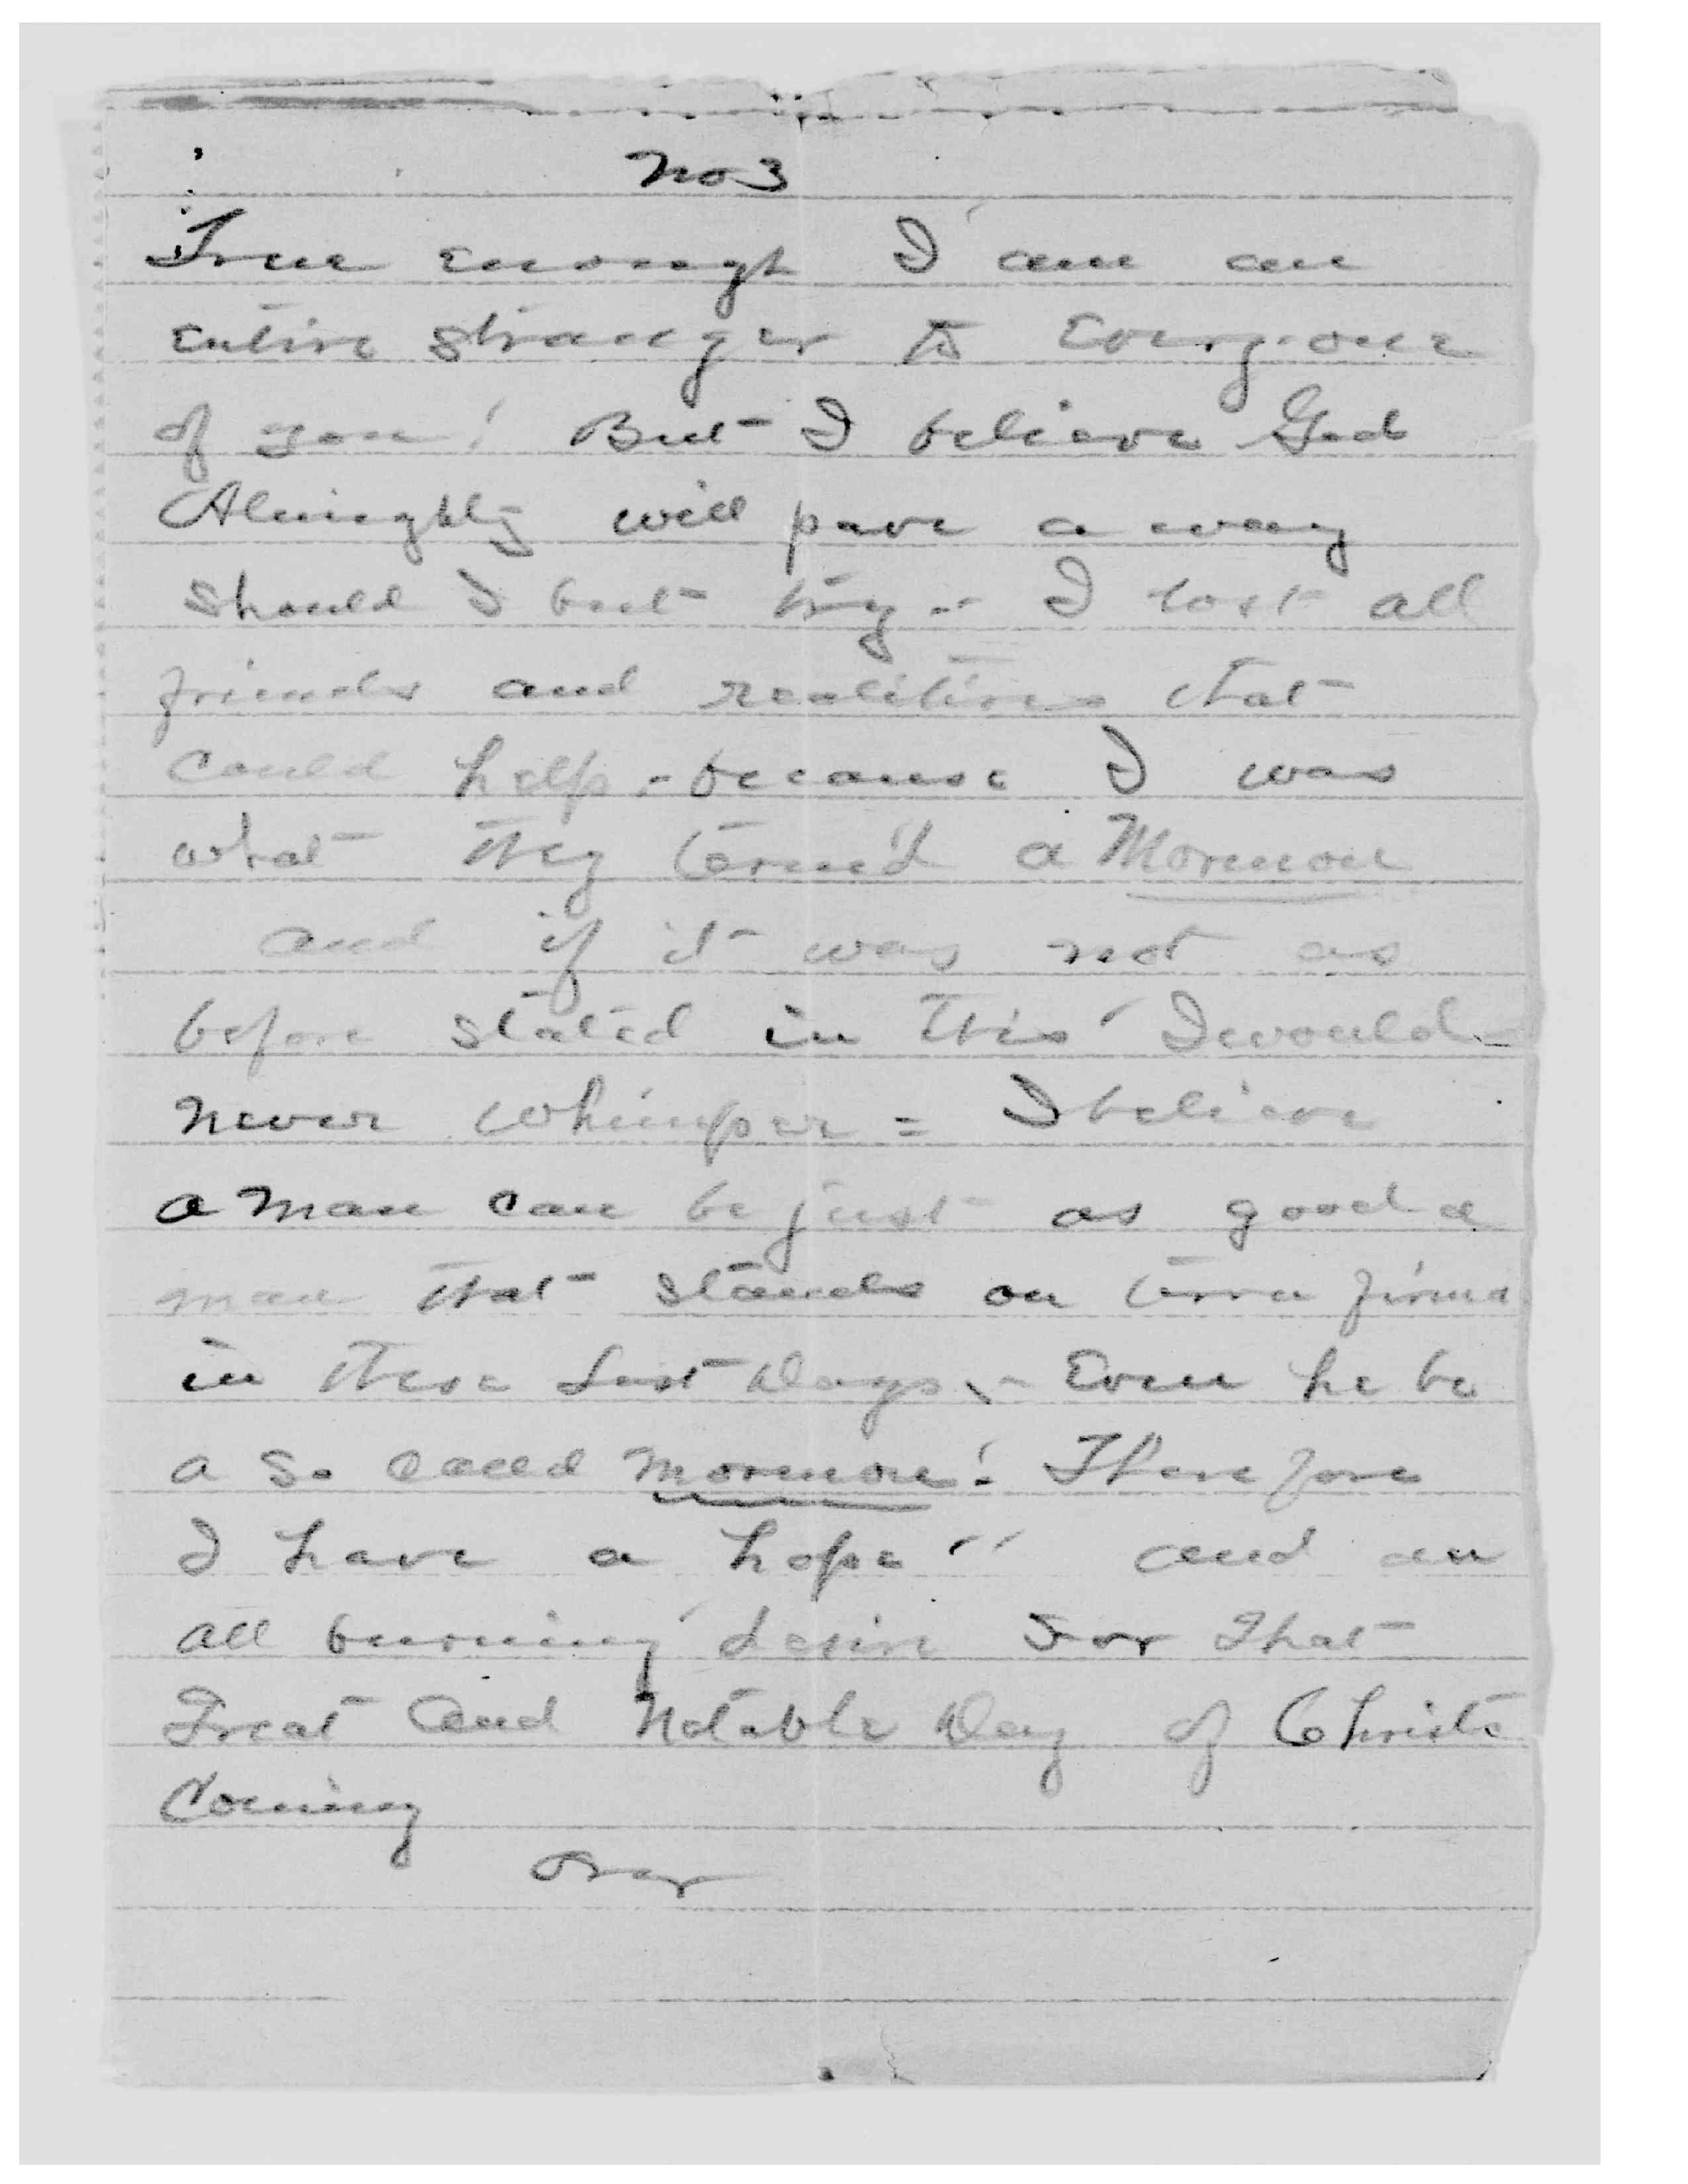 No 3
True enough I am an
entire stranger to Everyone
of you! But I believe God
Almighty will pave a way
should I but try - I lost all
friends and realitives that
could help - because I was
what they term'd a Mormon
and if it was not as
before stated in this I would
never whimper = I believe
a man can be just as good a
man that stands on terra firma
in these Last Days, - Even he be
a So called Mormon! Therefore
I have a hope" and an
all burning desire For That
Great and Notable Day of Christs
Coming
Over